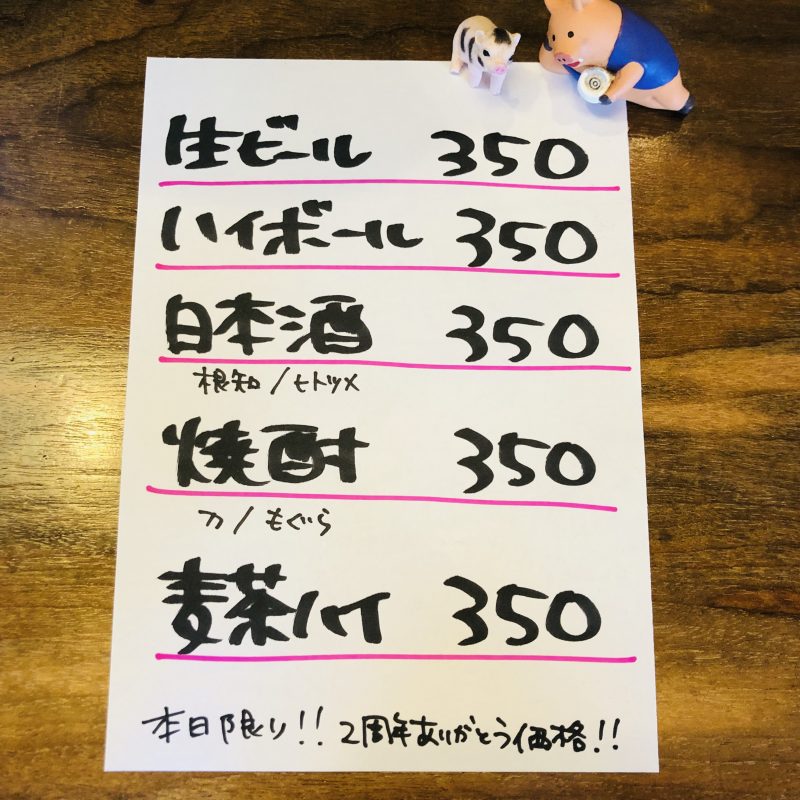 生ビール 350
ハイボール 350
日本酒 350
根知/ヒトツメ
焼酎 350
刀/もぐら
麦茶ハイ 350
本日限り!! 2周年ありがとう価格!!